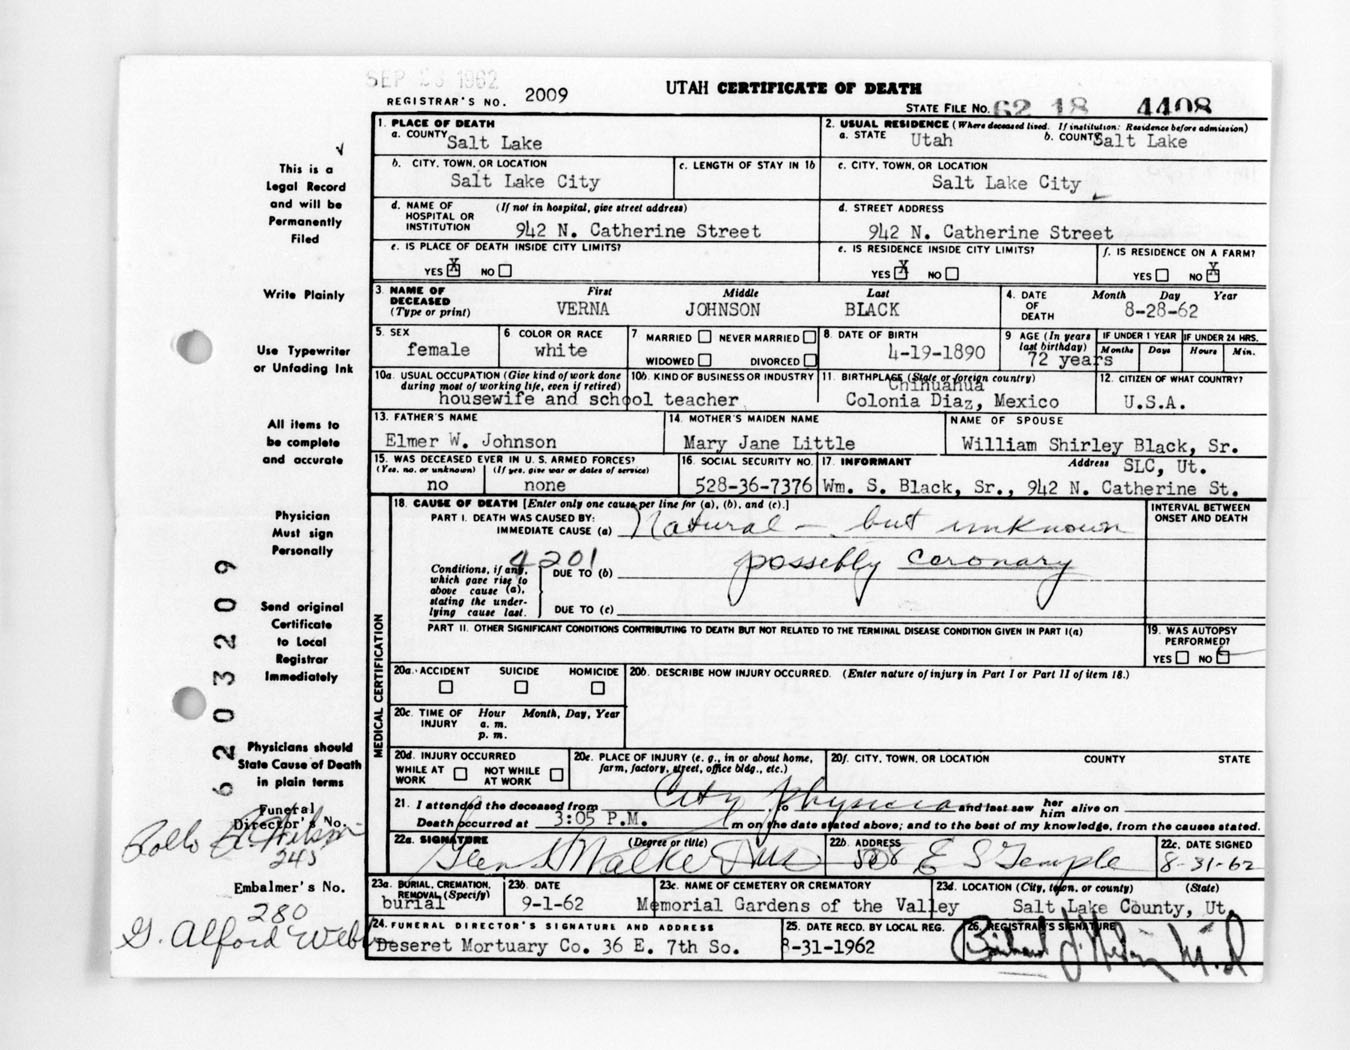 SEP 1962
REGISTRAR'S NO. 2009
UTAH CERTIFICATE OF DEATH
STATE FILE NO. 62 18 4408
This is a
Legal Record
and will be
Permanently
Filed
Write Plainly
Use Typewriter
or Unfading Ink
All items to
be complete
and accurate
Physician
Must sign
Personally
Send original
Certificate
to Local
Registrar
Immediately
Physicians should
State Cause of Death
in plain terms
Funeral
Director's No.
Rollo
245
Embalmer's No.
280
G. Alford Webb
6203209
1. PLACE OF DEATH
a. COUNTY Salt Lake
2. USUAL RESIDENCE (Where deceased lived. If institution: Residence before admission)
a. STATE Utah b. COUNTY Salt Lake
b. CITY, TOWN, OR LOCATION
Salt Lake City
c. LENGTH OF STAY IN 1b
c. CITY, TOWN, OR LOCATION
Salt Lake City
d. NAME OF HOSPITAL OR INSTITUTION (If not in hospital, give street address)
942 N. Catherine Street
d. STREET ADDRESS
942 N. Catherine Street
e. IS PLACE OF DEATH INSIDE CITY LIMITS?
YES X NO
e. IS RESIDENCE INSIDE CITY LIMITS?
YES X NO
f. IS RESIDENCE ON A FARM?
YES NO X
3. NAME OF DECEASED (Type or print)
First Middle Last
VERNA JOHNSON BLACK
4. DATE OF DEATH Month Day Year
8-28-62
5. SEX
female
6 COLOR OR RACE
white
7 MARRIED NEVER MARRIED
WIDOWED DIVORCED
8 DATE OF BIRTH
4-19-1890
9 AGE (In years last birthday)
72 years
IF UNDER 1 YEAR IF UNDER 24 HRS.
Months Days Hours Min.
10a. USUAL OCCUPATION (Give kind of work done during most of working life, even if retired)
10b. KIND OF BUSINESS OR INDUSTRY
housewife and school teacher
11. BIRTHPLACE (State or foreign country)
Chihuahua
Colonia Diaz, Mexico
12. CITIZEN OF WHAT COUNTRY?
U.S.A.
13. FATHER'S NAME
Elmer W. Johnson
14. MOTHER'S MAIDEN NAME
Mary Jane Little
NAME OF SPOUSE
William Shirley Black, Sr.
15. WAS DECEASED EVER IN U.S. ARMED FORCES?
(Yes, no, or unknown) (If yes, give war or dates of service)
no none
16. SOCIAL SECURITY NO.
528-36-7376
17. INFORMANT Address SLC, Ut.
Wm. S. Black, Sr., 942 N. Catherine St.
MEDICAL CERTIFICATION
18. CAUSE OF DEATH [Enter only one cause per line for (a), (b), and (c).]
INTERVAL BETWEEN ONSET AND DEATH
PART I. DEATH WAS CAUSED BY:
IMMEDIATE CAUSE (a) Natural - but unknown
4201
Conditions, if any, which gave rise to above cause (a), stating the underlying cause last.
DUE TO (b) possebly coronary
DUE TO (c)
PART II. OTHER SIGNIFICANT CONDITIONS CONTRIBUTING TO DEATH BUT NOT RELATED TO THE TERMINAL DISEASE CONDITION GIVEN IN PART I(a)
19. WAS AUTOPSY PERFORMED?
YES NO
20a. ACCIDENT SUICIDE HOMICIDE
20b. DESCRIBE HOW INJURY OCCURRED. (Enter nature of injury in Part I or Part II of item 18.)
20c. TIME OF INJURY Hour Month, Day, Year
a. m.
p. m.
20d. INJURY OCCURRED
WHILE AT WORK NOT WHILE AT WORK
20e. PLACE OF INJURY (e. g., in or about home, farm, factory, street, office bldg., etc.)
20f. CITY, TOWN, OR LOCATION COUNTY STATE
21. I attended the deceased from City Physician to and last saw her him alive on
Death occurred at 3:05 P.M. m on the date stated above; and to the best of my knowledge, from the causes stated.
22a. SIGNATURE (Degree or title)
22b. ADDRESS
E S Temple
22c. DATE SIGNED
8-31-62
23a. BURIAL, CREMATION, REMOVAL (Specify)
burial
23b. DATE
9-1-62
23c. NAME OF CEMETERY OR CREMATORY
Memorial Gardens of the Valley
23d. LOCATION (City, town, or county) (State)
Salt Lake County, Ut.
24. FUNERAL DIRECTOR'S SIGNATURE AND ADDRESS
Deseret Mortuary Co. 36 E. 7th So.
25. DATE RECD. BY LOCAL REG.
8-31-1962
26. REGISTRAR'S SIGNATURE